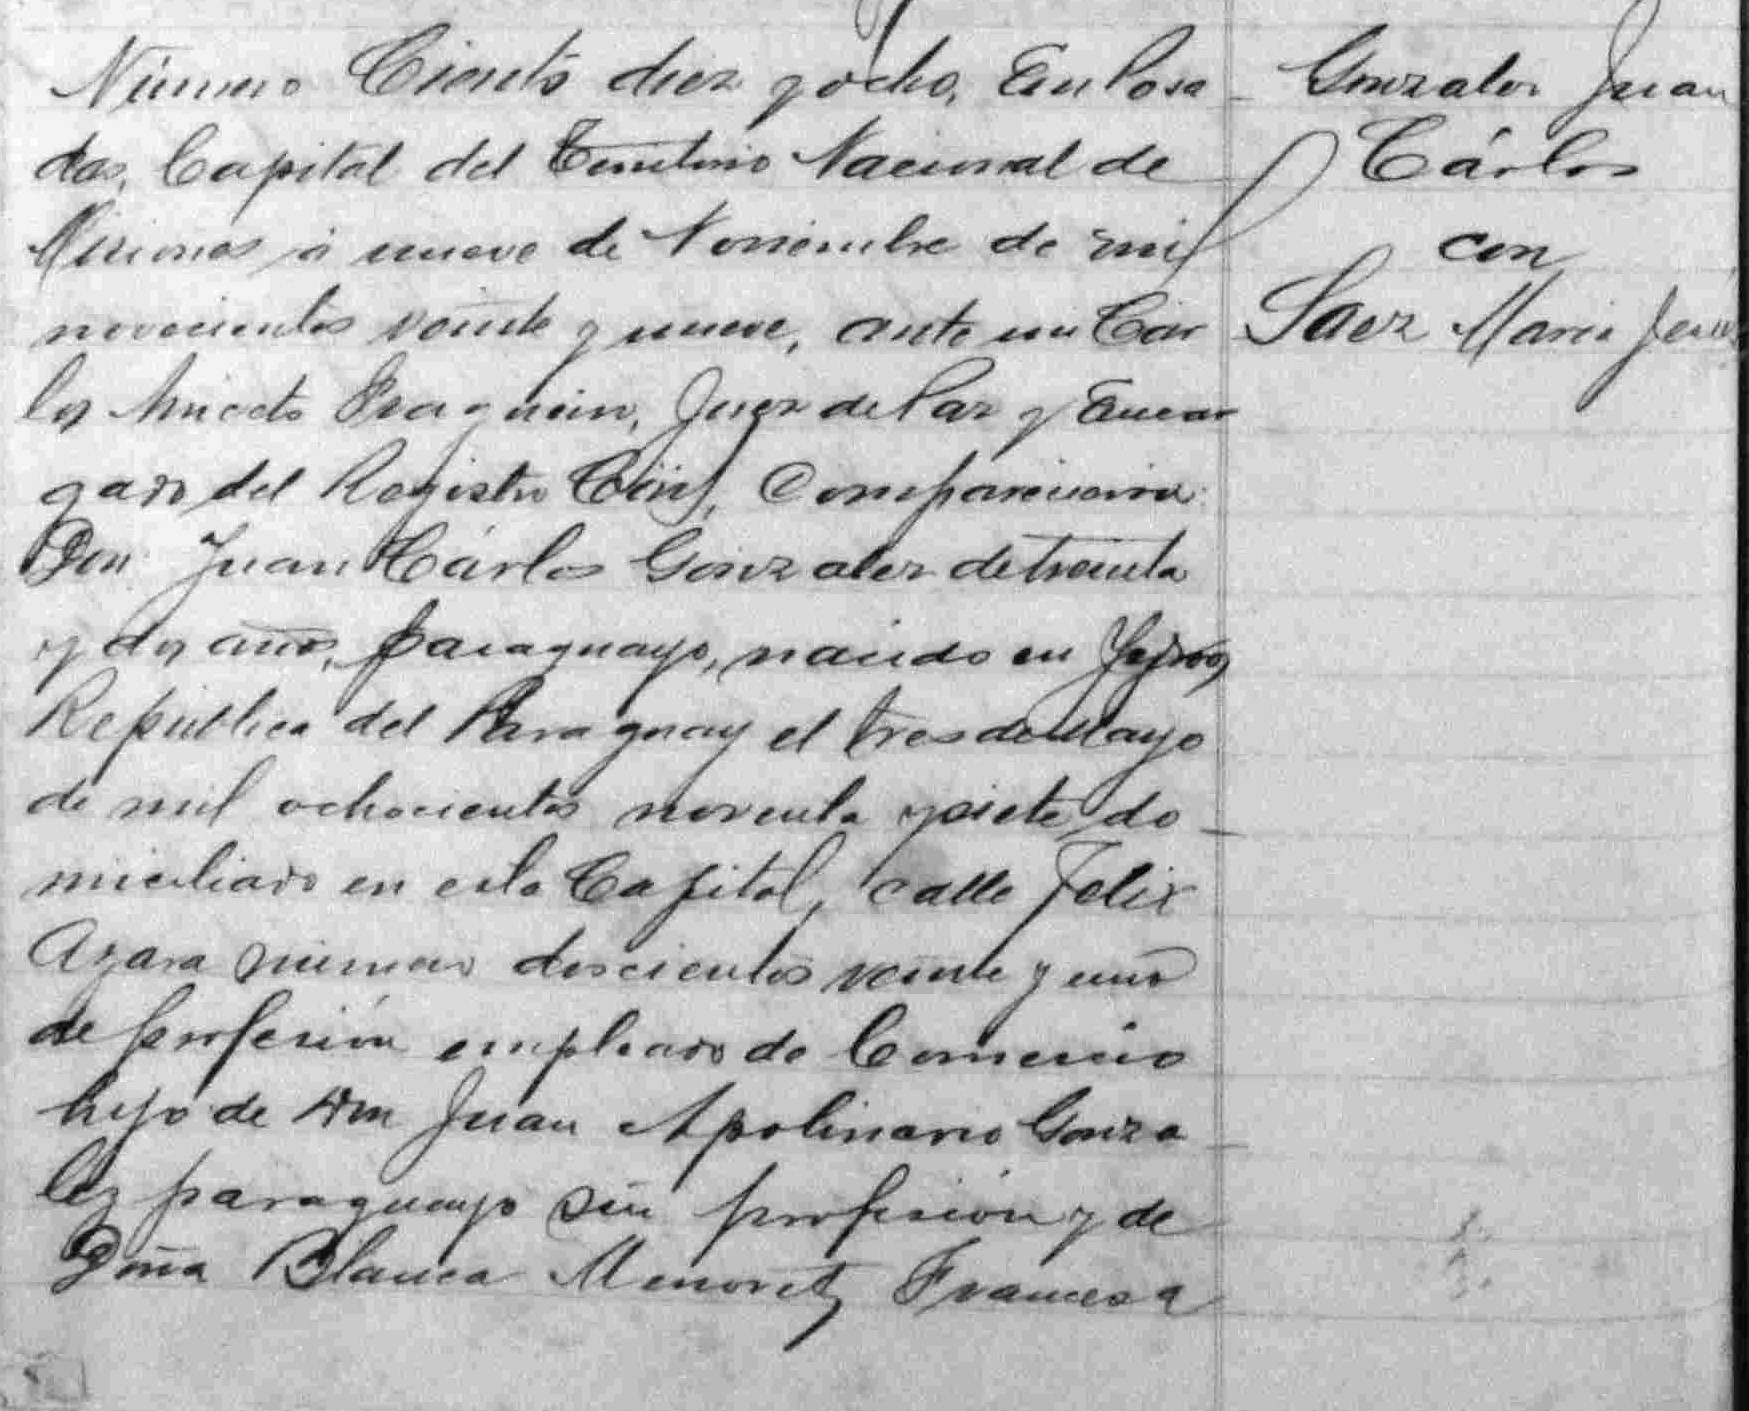 Número Ciento diez y ocho, En Posa
das, Capital del Territorio Nacional de
Misiones á nueve de Noviembre de mil
novecientos veinte y nueve, ante mi Car
los Aniceto Fraguein, Juez de Paz y Encar
gado del Registro Civil, Comparecieron:
Don Juan Cárlos Gonzalez de treinta
y dos años, paraguayo, nacido en
República del Paraguay el tres de Mayo
de mil ochocientos noventa y siete, do
miciliado en esta Capital, calle Felix
Azara número doscientos veinte y uno
de profesión empleado de Comercio
hijo de Don Juan Apolinario Gonza
lez paraguayo sin profesión y de
Doña Blanca Menoret, Francesa
Gonzalez Juan
Cárlos
con
Saez Maria Jesús